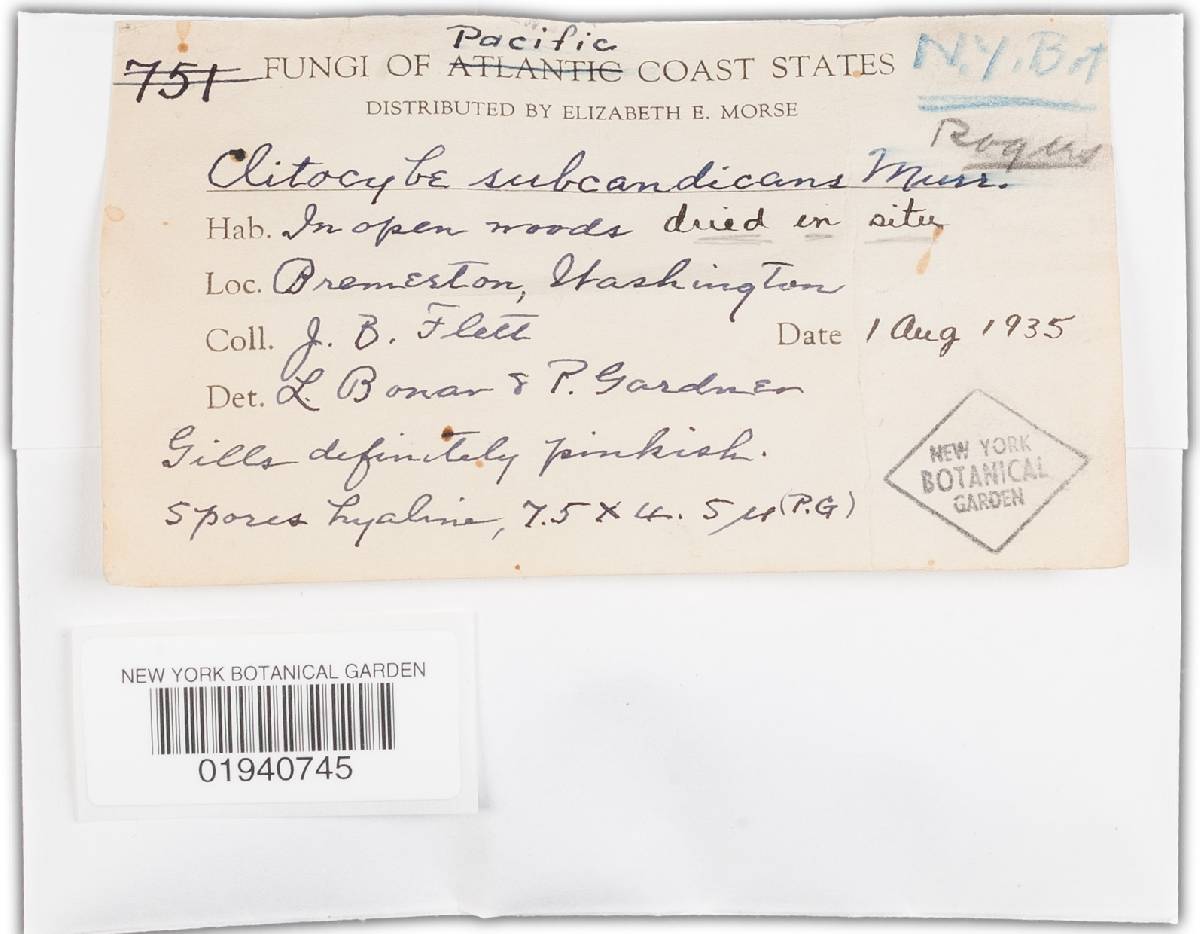 Pacific
751 FUNGI OF ATLANTIC COAST STATES N.Y. Bot
DISTRIBUTED BY ELIZABETH E. MORSE
Rogers
Clitocybe subcandicans Murr.
Hab. In open woods dried in situ
Loc. Bremerton, Washington
Coll. J. B. Flett Date 1 Aug 1935
Det. L. Bonar & P. Gardner
Gills definitely pinkish.
Spores hyaline, 7.5 X 4.5 µ (P.G)
NEW YORK
BOTANICAL
GARDEN
NEW YORK BOTANICAL GARDEN
01940745